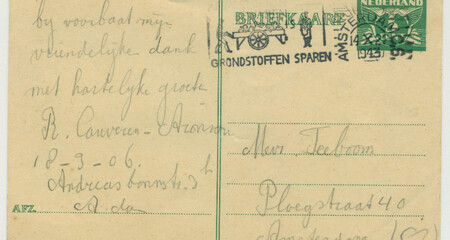 by voorbaat mijn
vriendelijke dank
met hartelyke groete
R. Cauveren-Aronson
18-9-06.
Andreas bonnstr. 3 h
A.dam
AFZ.
BRIEFKAART
NEDERLAND
GRONDSTOFFEN SPAREN
AMSTERDAM
1943
Mevr Teeboom
Ploegstraat 40
Amsterdam